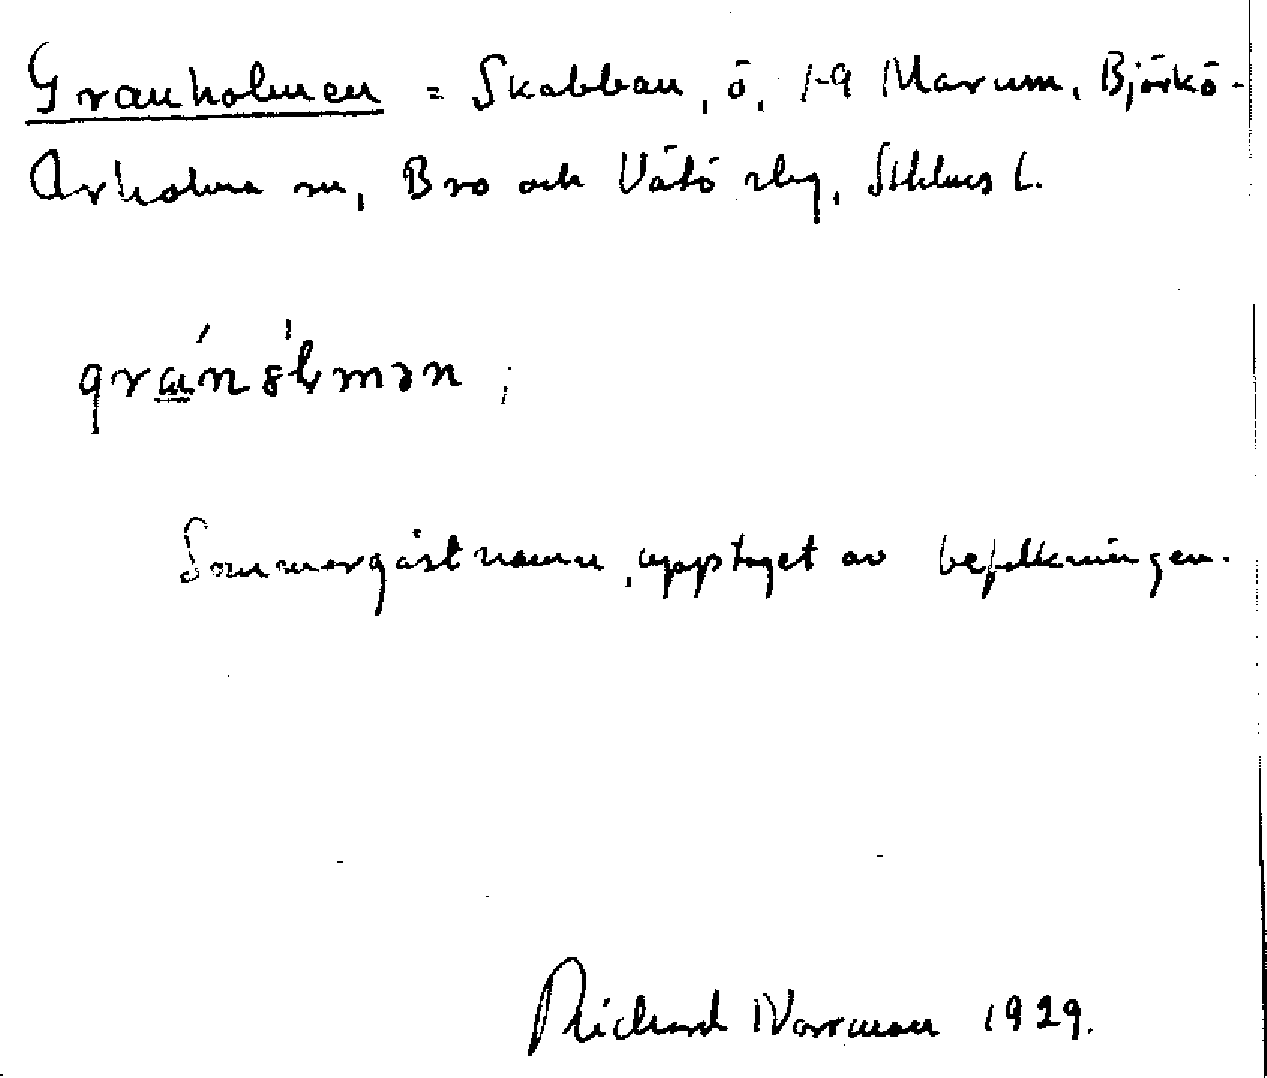 Granholmen = Skabban, ö, 1-9 Marum, Björkö-
Arholma sn, Bro och Vätö slg, Sthlms l.
grán ólmən ;
Sommargästnamn, upptaget av befolkningen.
Richard Norrman 1929.